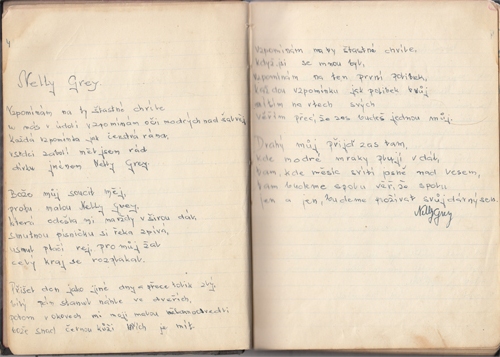 Nelly Grey.
Vzpomínám na ty šťastné chvíle
vzpomínám oči modrých nad
Každá vzpomínka jak čerstvá rána,
srdci zabil měl jsem rád
dívka jménem Nelly Grey.
Bože můj soucit měj,
proku malou Nelly Grey,
která odešla mi navždy v širou dál,
smutnou písničku si řeka zpívá,
usnul ptačí rej pro můj žal
celý kraj se rozplakal.
Přišel den jako jiné dny a srdce tolik
bílý pán stanul náhle ve dveřích,
potom v okovech mi mojí malou
snad černou kůži hřích je mít.
Vzpomínám na ty šťastné chvíle
když jsi se mnou byl,
vzpomínám na ten první polibek,
každou vzpomínku jak polibek tvůj
cítím na rtech svých
věřím přec, že zas budeš jednou můj.
Drahý můj přijď zas tam,
kde modré mraky plují v dál,
tam, kde měsíc svítí jasně nad lesem,
tam budeme spolu věř, že spolu
jen a jen, budeme prožívat svůj dávný sen.
Nelly Grey